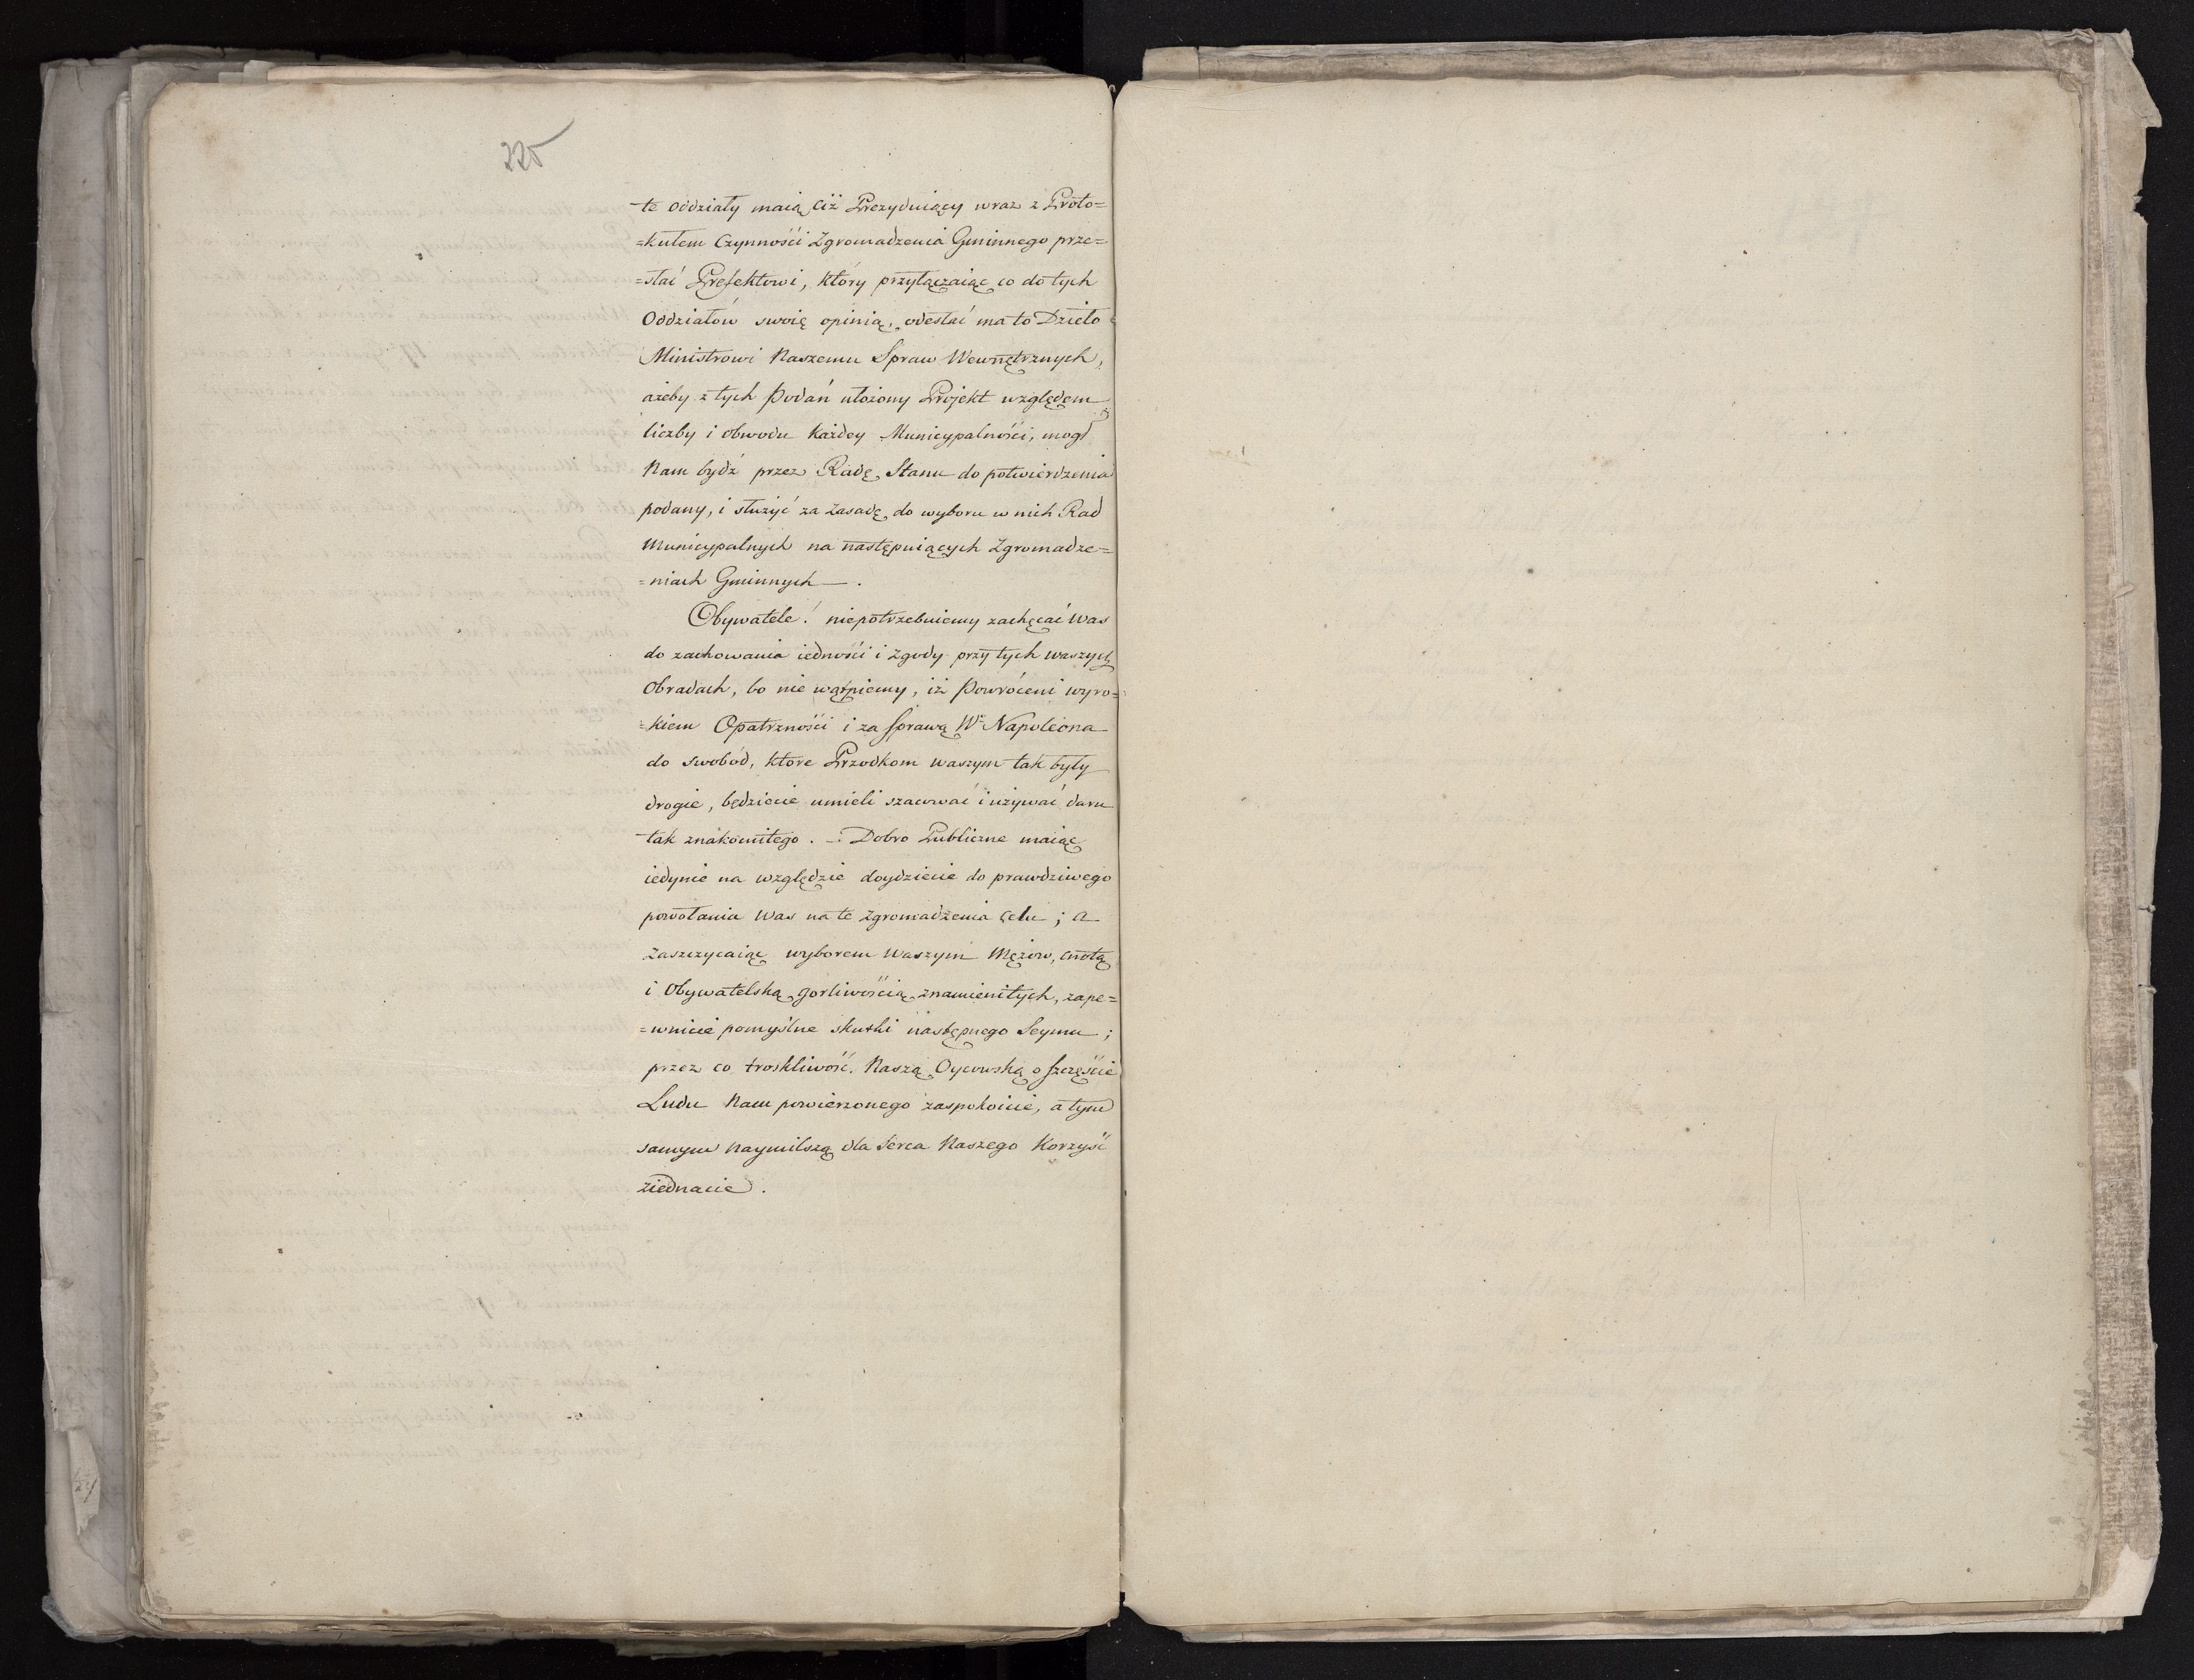 225
te oddziały maią ciż Prezyduiący wraz z Proto=
=kułem Czynności Zgromadzenia Gminnego prze=
=słać Prefektowi, który przyłączaiąc co do tych
Oddziałów swoię opinią, odesłać ma to Dzieło
Ministrowi Naszemu Spraw Wewnętrznych,
ażeby z tych Podań ułożony Projekt względem
liczby i obwodu każdey Municypalności, mogł
Nam bydź przez Radę Stanu do potwierdzenia
podany, i służyć za zasadę do wyboru w nich Rad
Municypalnych na następuiących Zgromadze=
=niach Gminnych —.
Obywatele! niepotrzebuiemy zachęcać Was
do zachowania iedności i zgody przy tych waszych
Obradach, bo nie wątpiemy, iż Powróceni wyro=
=kiem Opatrzności i za sprawą W. Napoleona
do swobód, które Przodkom waszym tak były
drogie, będziecie umieli szacować i używać daru
tak znakomitego. — Dobro Publiczne maiąc
iedynie na względzie doydziecie do prawdziwego
powołania Was na te Zgromadzenia celu; a
Zaszczycaiąc wyborem Waszym Mężow, cnotą
i Obywatelską gorliwością znamienitych, zape=
=wnicie pomyślne skutki następnego Seymu;
przez co troskliwość Naszą Oycowską o szczęście
Ludu Nam powierzonego zaspokoicie, a tym
samym naymilszą dla Serca Naszego Korzyść
ziednacie.
24